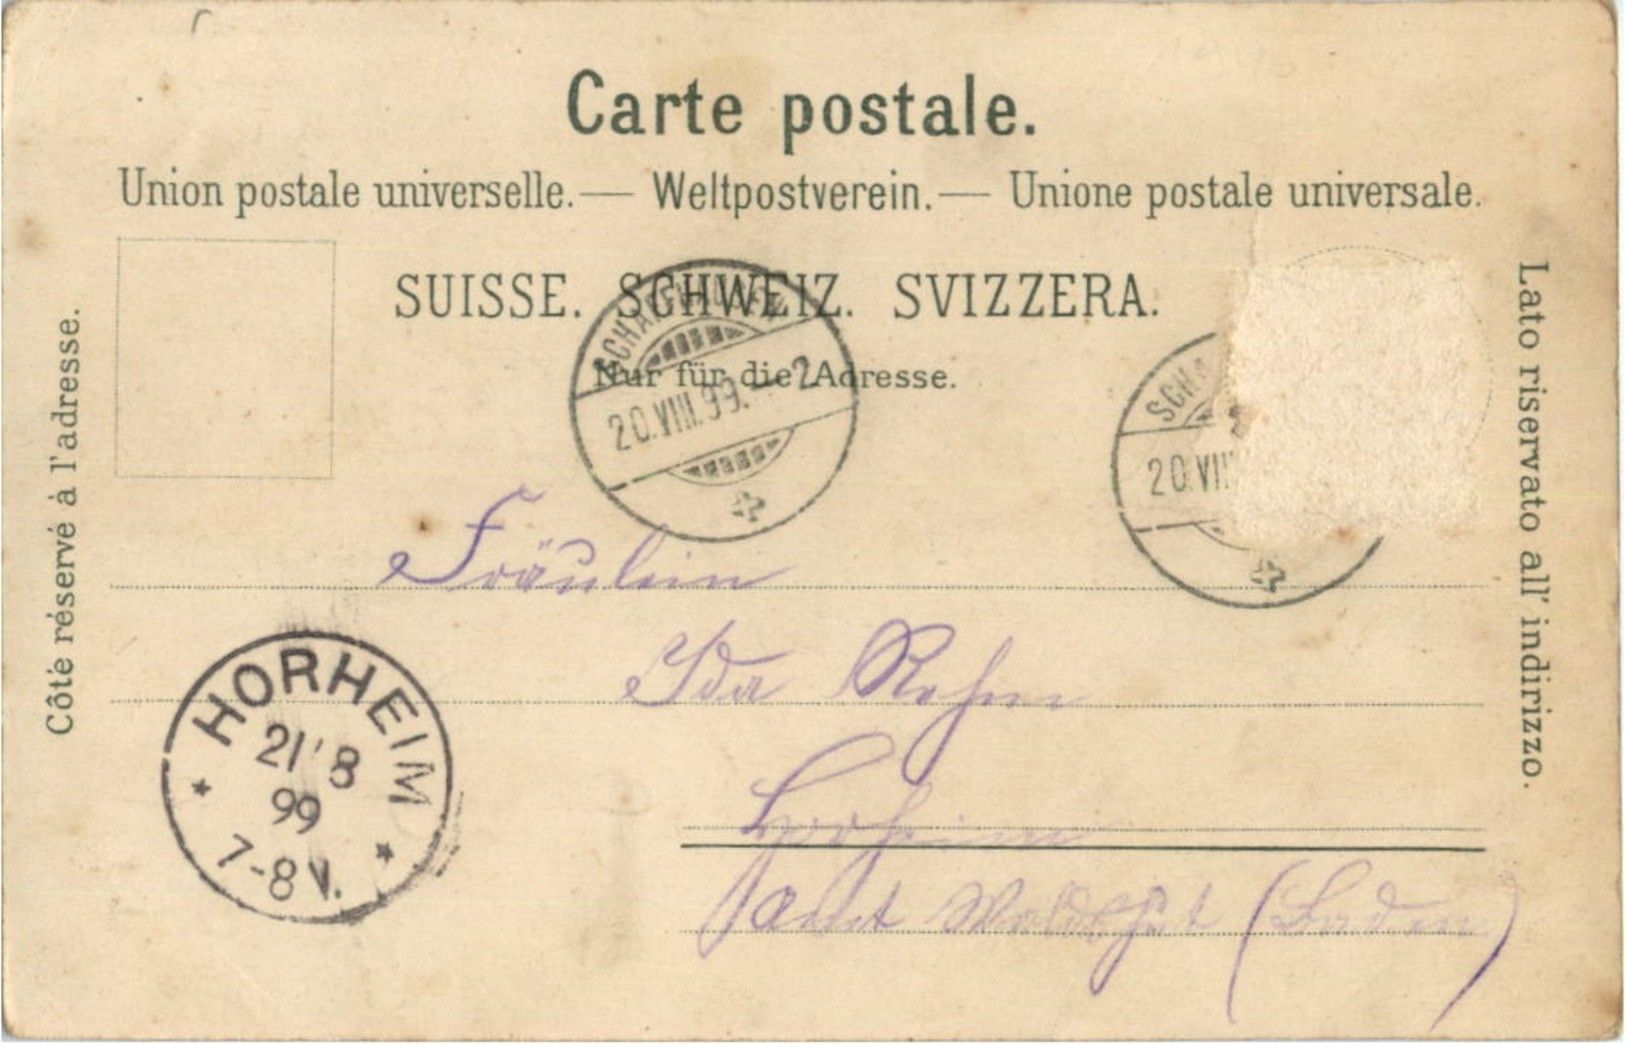 Carte postale.
Union postale universelle.— Weltpostverein.— Unione postale universale.
SUISSE. SCHWEIZ. SVIZZERA.
Nur für die Adresse.
Côté réservé à l'adresse.
Lato riservato all' indirizzo.
20.VIII.99.–2
SCHA
20.VIII
Fräulein
Ida
Horheim
Amt Waldshut (Baden)
HORHEIM
21/8
99
7-8 V.